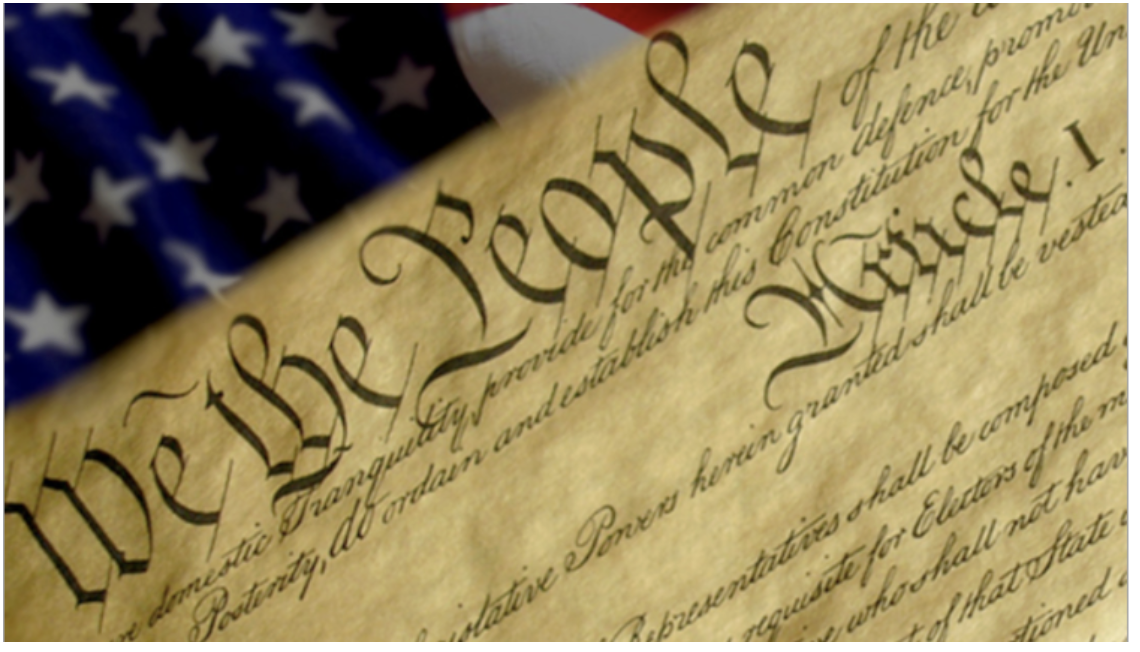 We the People of the
re domestic Tranquility, provide for the common defence, promo
Posterity, do ordain and establish this Constitution for the Un
Article. I.
islative Powers herein granted shall be vested
Representatives shall be composed
requisite for Electors of the m
ve who shall not hav
t of that State
tioned